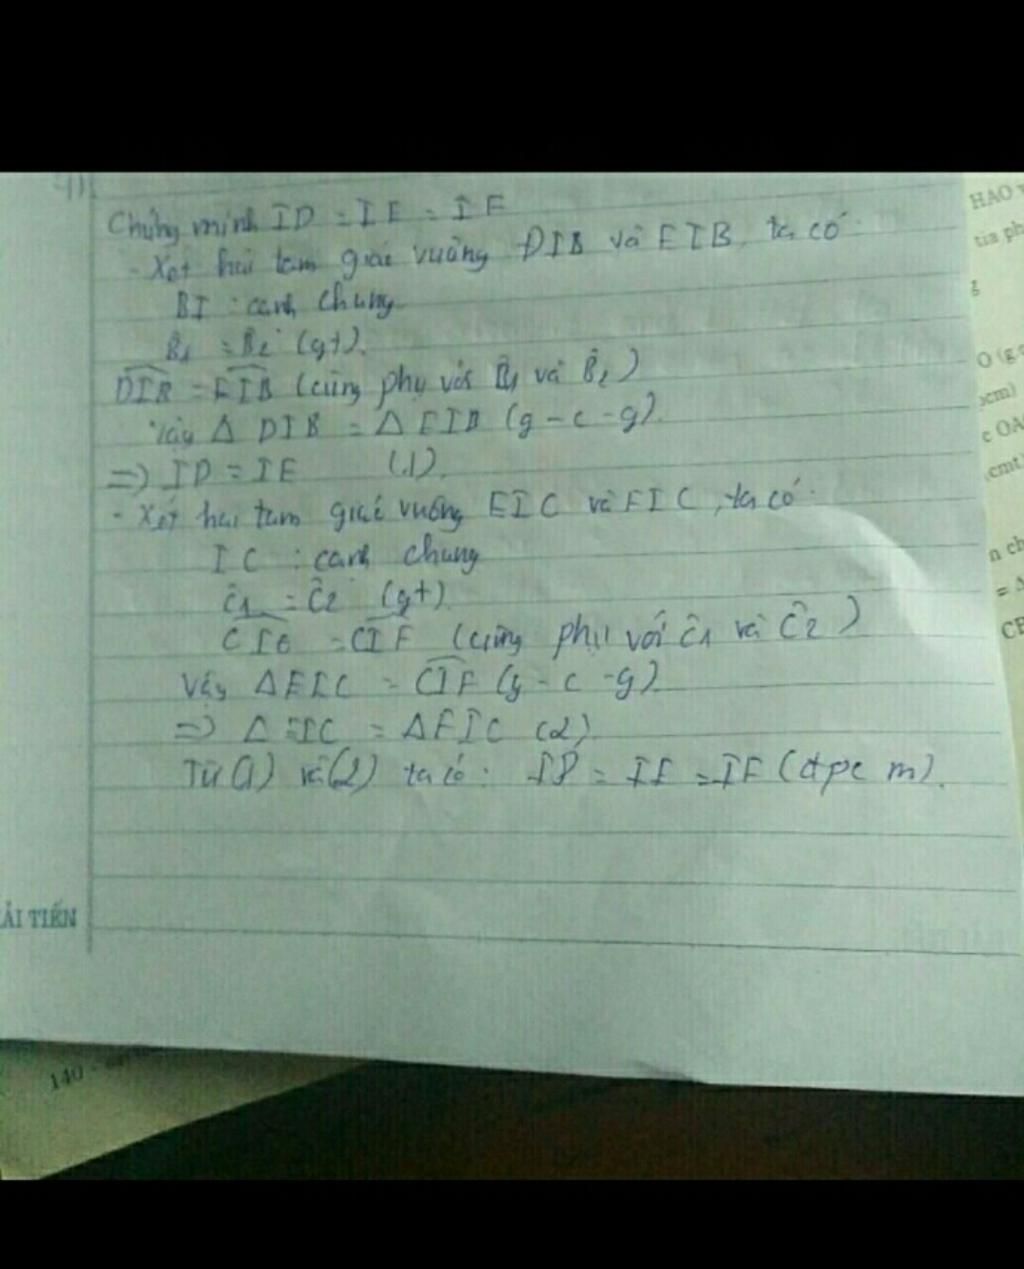 Chứng minh ID = IE = IF
- Xét hai tam giác vuông DIB và EIB, ta có:
BI : cạnh chung
B̂1 = B̂2 (gt).
DIB = EIB (cùng phụ với B̂1 và B̂2)
Vậy Δ DIB = Δ EIB (g - c - g).
=> ID = IE (1).
- Xét hai tam giác vuông EIC và FIC, ta có:
IC : cạnh chung
Ĉ1 = Ĉ2 (gt)
CIE = CIF (cùng phụ với Ĉ1 và Ĉ2)
Vậy ΔEIC = CIF (g - c - g).
=> Δ EIC = ΔFIC (2)
Từ (1) và (2) ta có: ID = IE = IF (đpc m).
ẢI TIẾN
140
HAO
tia ph
g
O (g.c
c OA
cmt)
n ch
= Δ